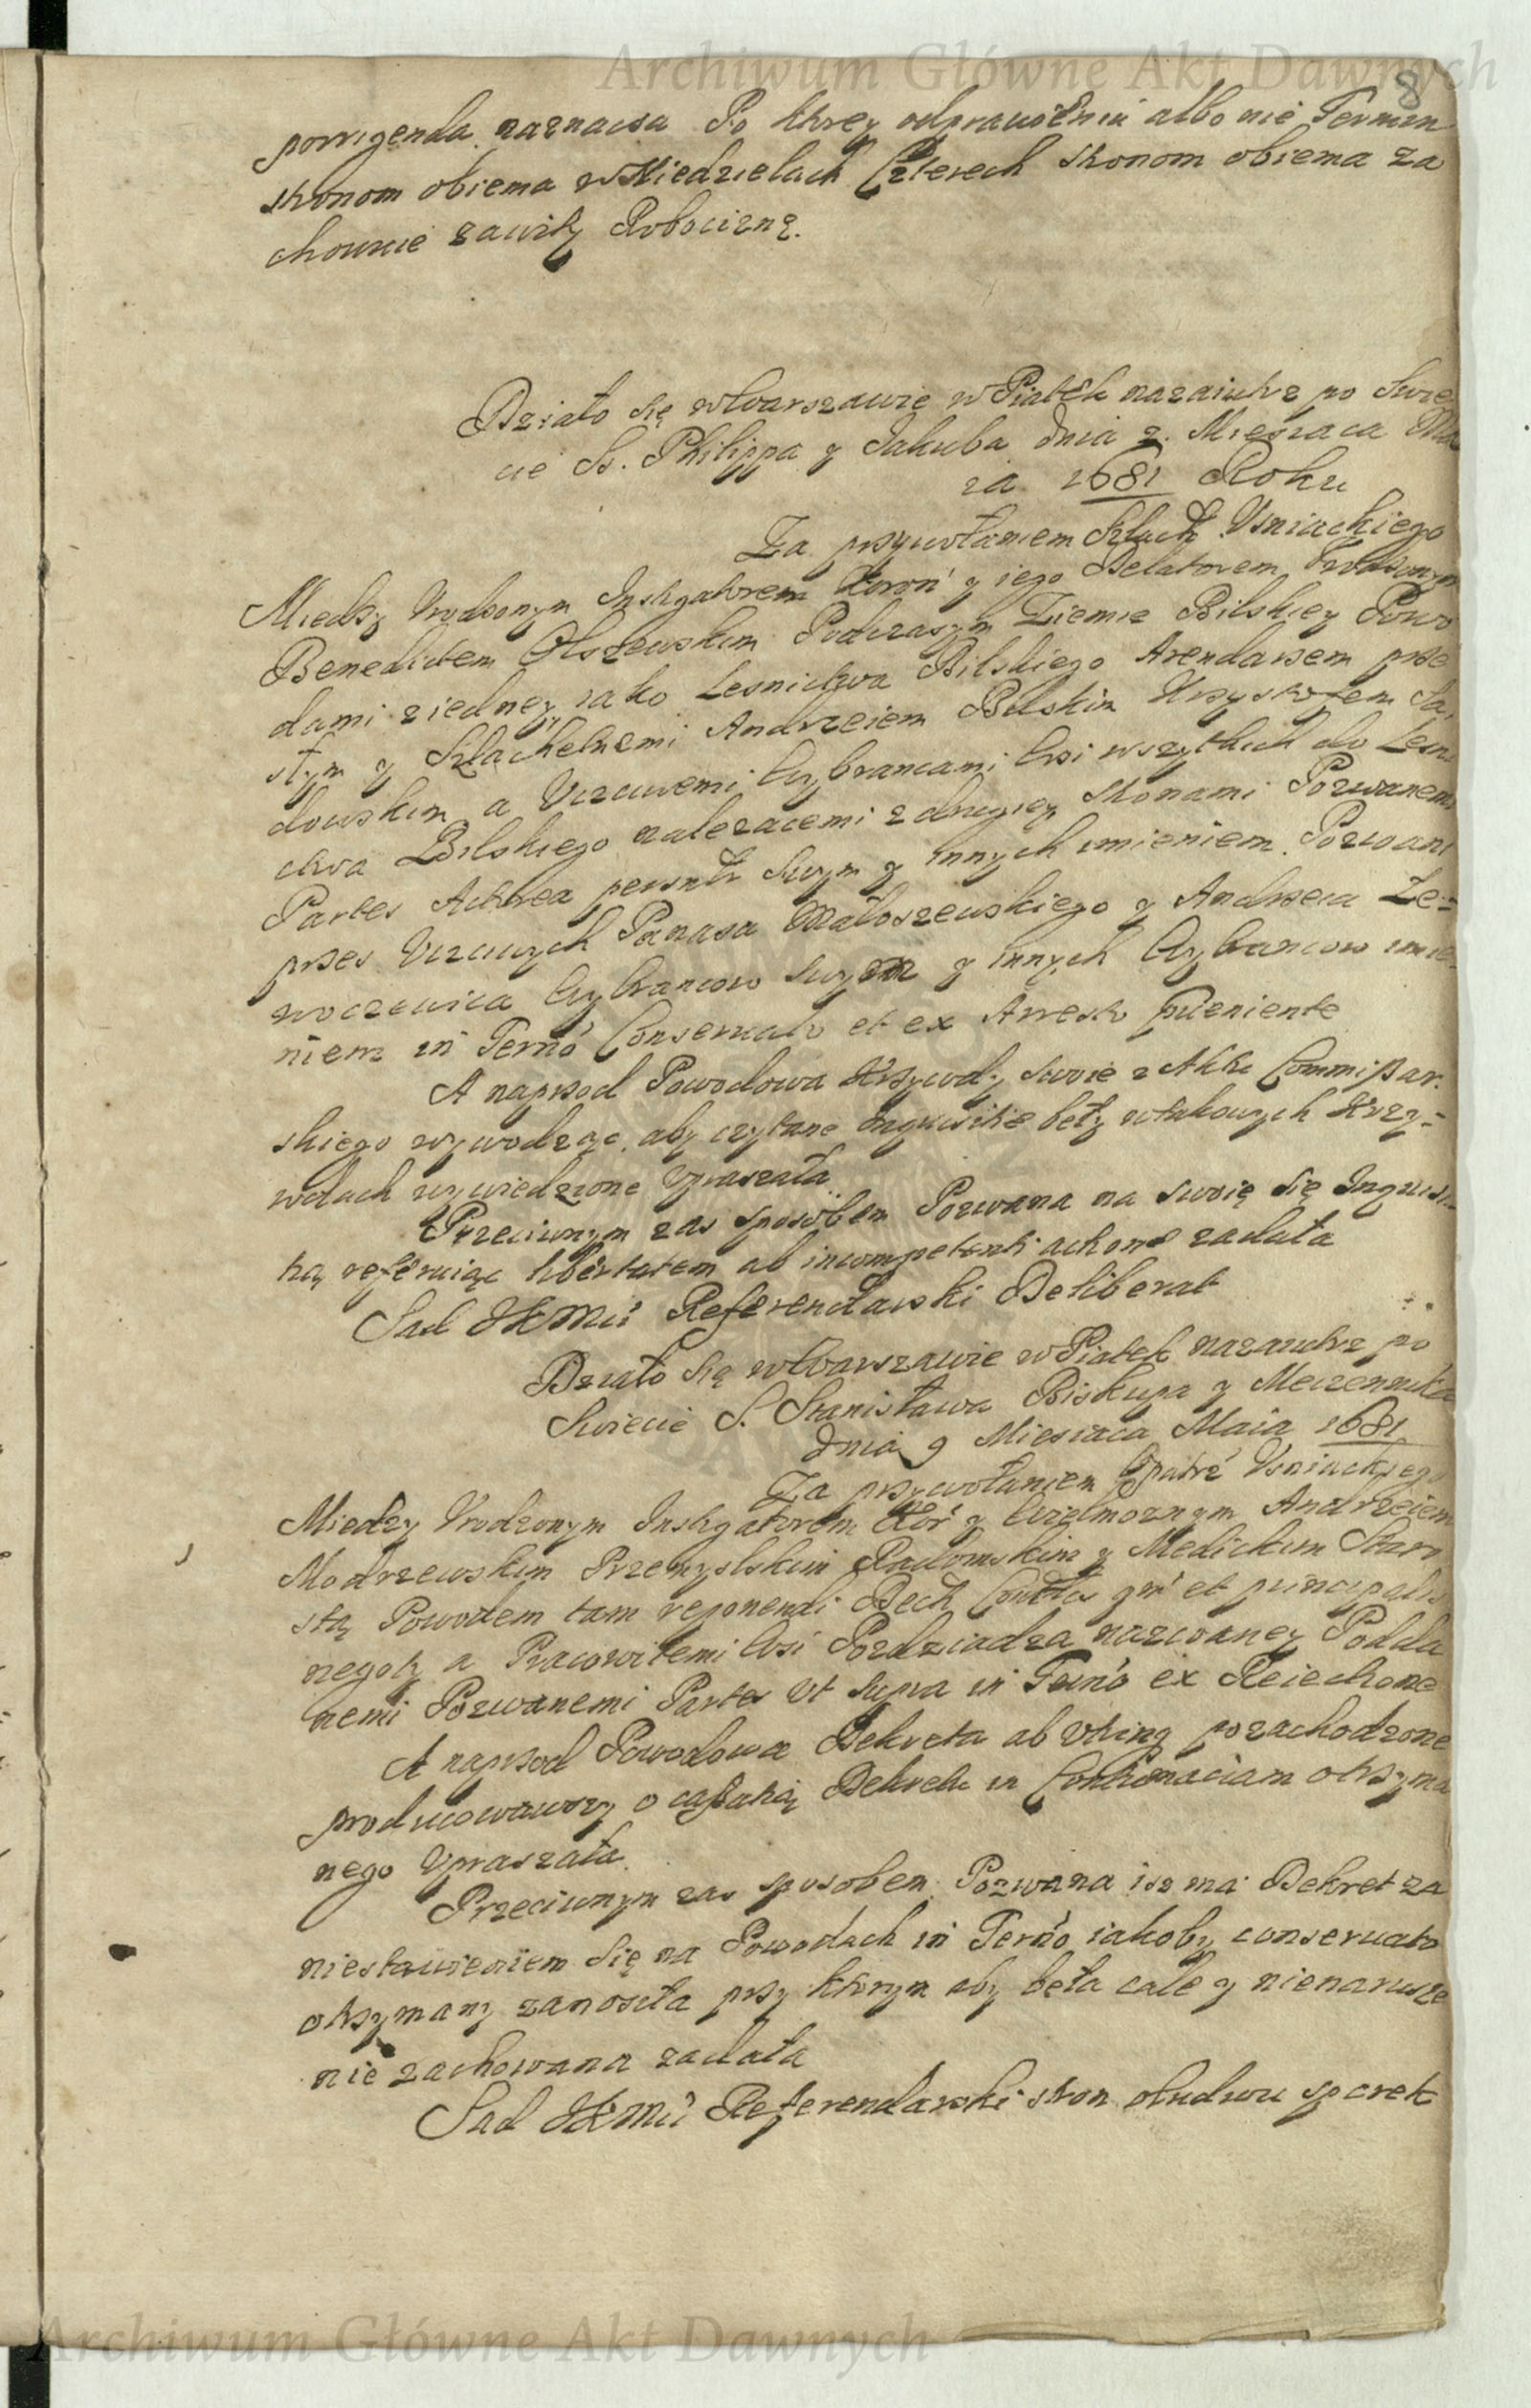 Archiwum Główne Akt Dawnych
8
porrigenda naznacza Po ktorey odprawieniu albo nie Termin
stronom obiema w Niedzielach Czterech stronom obiema za
chowuie zawity Robociznę.
Działo się w Warszawie w Piątek nazaiutrz po Swię
cie SS. Philippa y Jakuba dnia 2. Miesiaca Ma
ia 1681 Roku
Za przywołaniem Szlach. Usniackiego
Miedzy Urodzonym Instigatorem Koroń y iego Delatorem Urodzonym
Benedictem Olszewskim Podczaszym Ziemie Bilskiey Powo
dami z iedney iako Lesnictwa Bilskiego Arendarzem prze
stym y Szlachetnemi Andrzeiem Bilskim Krzysztofem Sa
dowskim a Uczciwemi Wybrancami Wsi wszytkich do Lesni
ctwa Bilskiego należacemi z drugiey stronami Pozwanemi
Partes Actorea personał swym y innych imieniem Pozwani
przez Uczciwych Panasa Małoszewskiego y Andrzeia Le=
woczewica Wybrancow swym y innych Wybrancow imie
niem in Termo Conservato et ex Arresto proveniente
A naprzod Powodowa Krzywdy swoie z Aktu Commissar.
skiego wywodząc, aby czytane Inquisitie beły w takowych Krzy=
wdach wywiedzione Upraszała
Przeciwnym zas sposobem Pozwana na swoię się Inquisi
tią referuiąc libertatem ab incompetenti actione zadała
Sad JKMci Referendarski Deliberat
Działo się w Warszawie w Piatek nazaiutrz po
Swiecie S. Stanisława Biskupa y Meczennika
dnia 9 Miesiaca Maia 1681
Za przywołaniem Usniackiego
Miedzy Urodzonym Instigatorem Kor y Wielmoznym Andrzeiem
Modrzewskim Przemyslskim Radomskim y Medickim Staro
stą Powodem tam reponendi Decti Contłis qm et principalis
negoty a Pracowitemi Wsi Pozdziadza nazwaney Podda
nemi Pozwanemi Partes Ut supra in Termo ex Reiectione
A naprzod Powodowa Dekreta ab Utrinq pozachodzone
producowawszy o cassatią Dekretu in Contumaciam otrzyma
nego Upraszała.
Przeciwnym zas sposobem Pozwana isz ma Dekret za
niestawieniem się na Powodach in Termo iakoby conservato
otrzymany zanosiła przy ktorym aby beła cale y nienarusze
nie zachowana zadała
Sad JKMci Referendarski stron obudwu sporek
Archiwum Główne Akt Dawnych